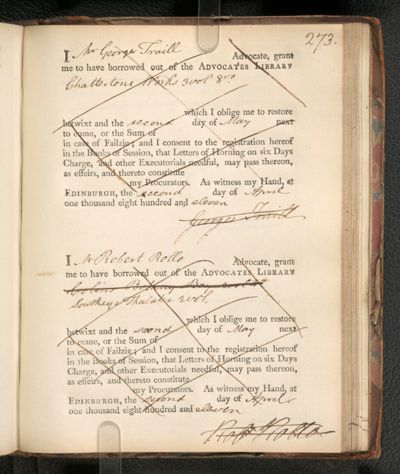 273.
I Mr George Traill Advocate, grant
me to have borrowed out of the ADVOCATES LIBRARY
Chattertons Works 3 vol 8vo
which I oblige me to restore
betwixt and the second day of May next
to come, or the Sum of
in case of Failzie; and I consent to the registration hereof
in the Books of Session, that Letters of Horning on six Days
Charge, and other Executorials needful, may pass thereon,
as effeirs, and thereto constitute
my Procurators. As witness my Hand, at
EDINBURGH, the second day of April
one thousand eight hundred and eleven
George Traill
I Mr Robert Rollo Advocate, grant
me to have borrowed out of the ADVOCATES LIBRARY
Collins Botany Bay
Southeys Thalaba 2 vol.
which I oblige me to restore
betwixt and the second day of May next
to come, or the Sum of
in case of Failzie; and I consent to the registration hereof
in the Books of Session, that Letters of Horning on six Days
Charge, and other Executorials needful, may pass thereon,
as effeirs, and thereto constitute
my Procurators. As witness my Hand, at
EDINBURGH, the second day of April
one thousand eight hundred and eleven
Robt Rollo